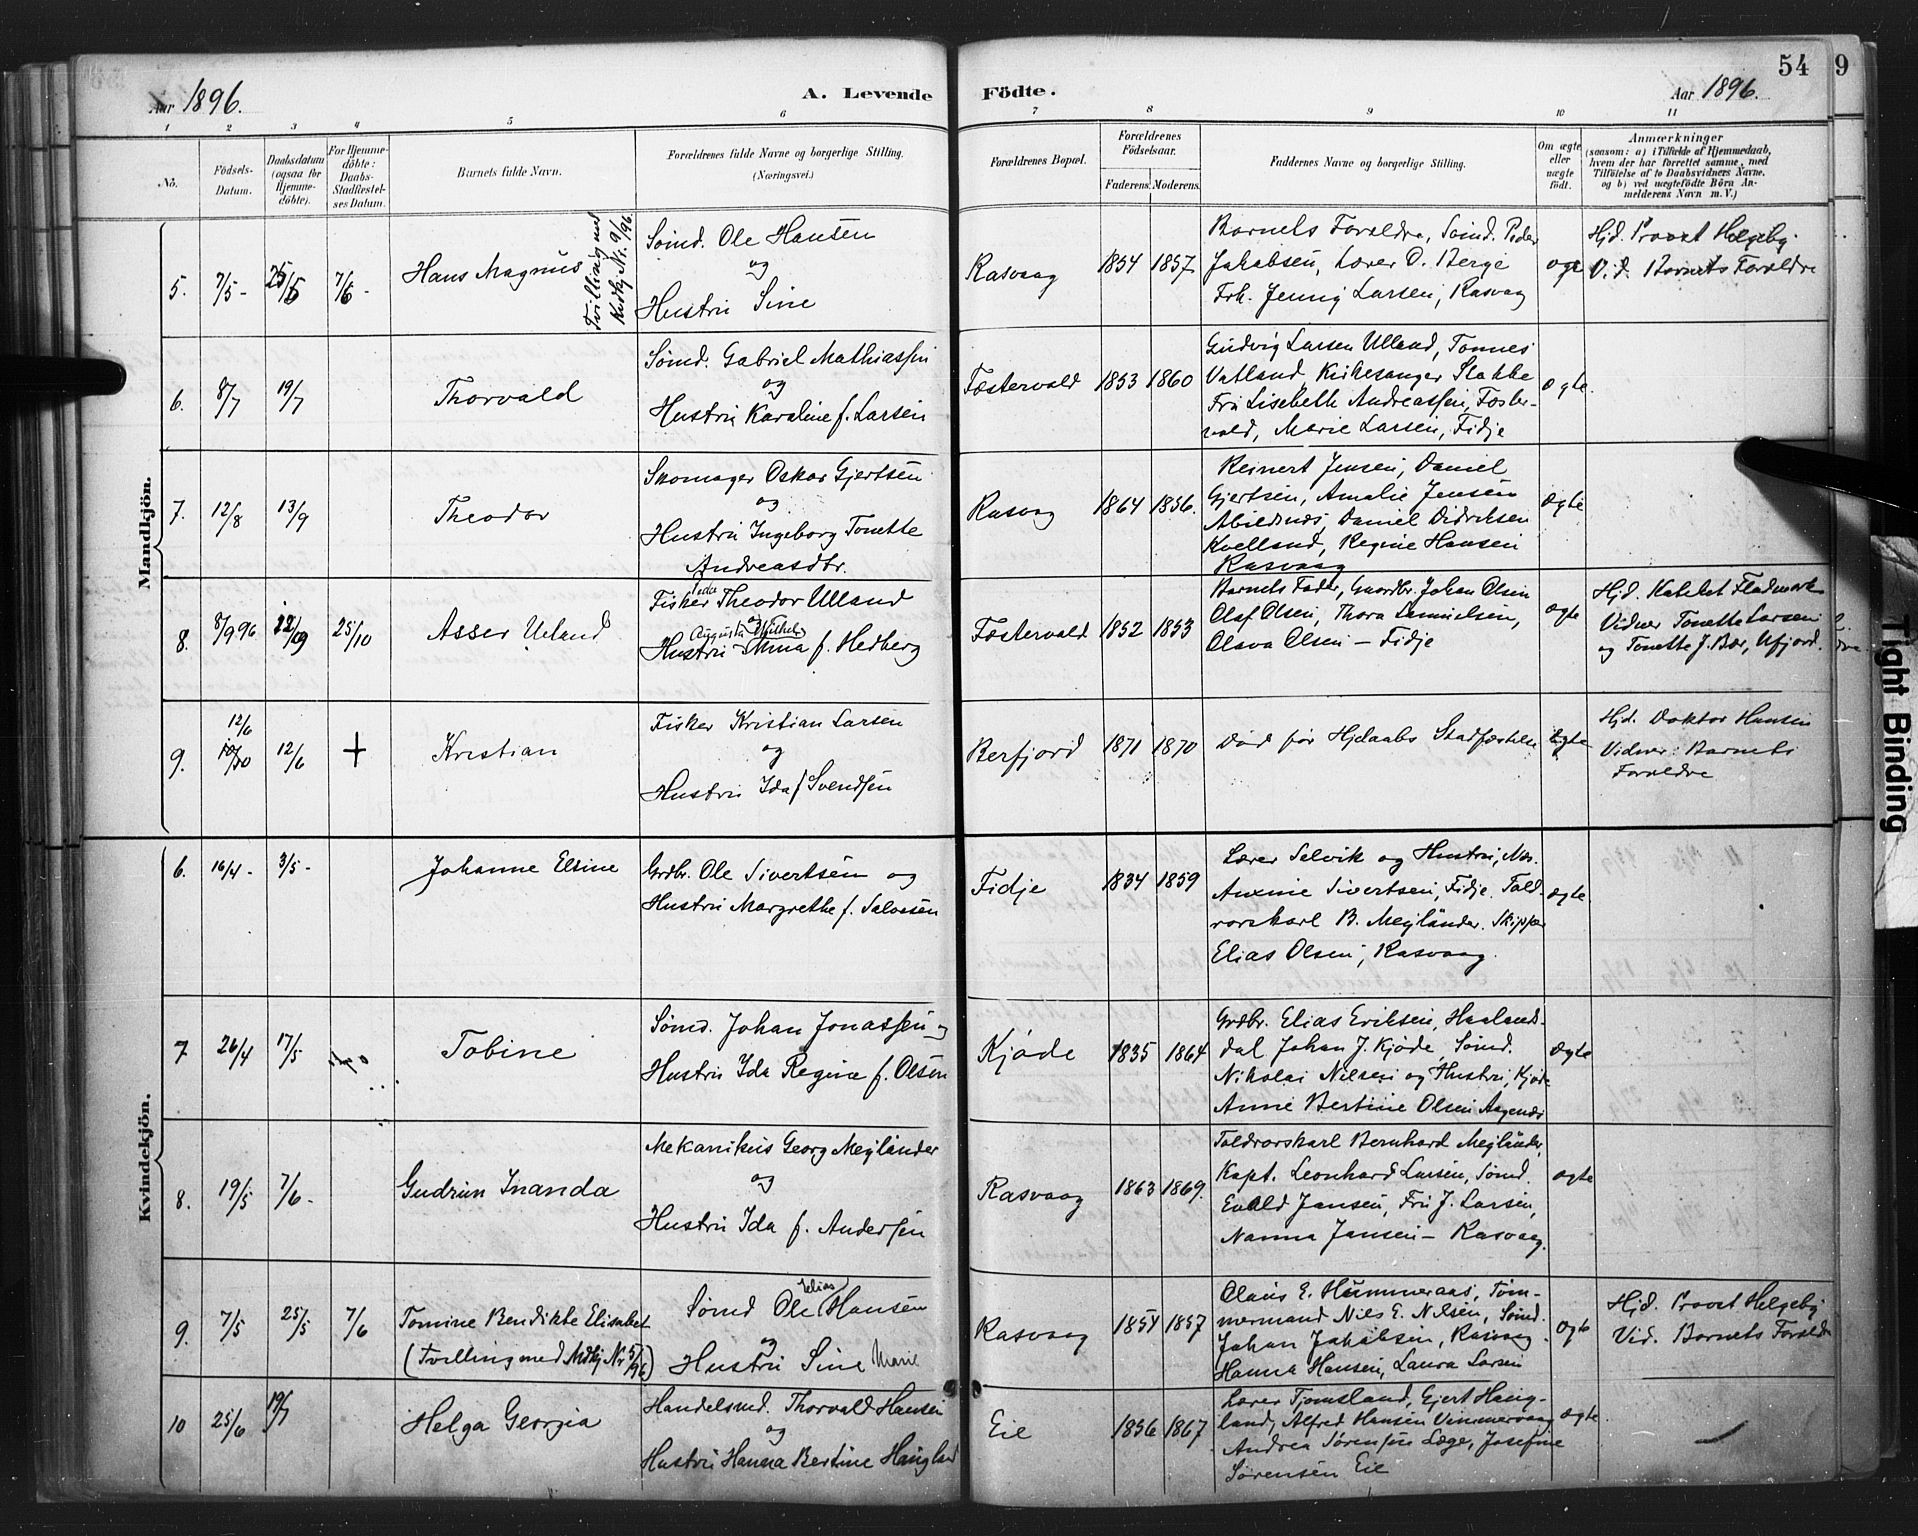 54
9
Aar 1896.
A. Levende Födte.
Aar 1896.
1 2 3 4 5 6 7 8 9 10 11
No.
Födsels-
Datum.
Daabsdatum
(ogsaa for
Hjemme-
döbte).
For Hjemme-
döbte:
Daabs-
Stadfæstel-
ses Datum.
Barnets fulde Navn.
Forældrenes fulde Navne og borgerlige Stilling.
(Næringsvei.)
Forældrenes Bopæl.
Forældrenes
Födselsaar.
Faderens. Moderens.
Faddernes Navne og borgerlige Stilling.
Om ægte
eller
uægte
födt.
Anmærkninger
(saasom: a) i Tilfælde af Hjemmedaab,
hvem der har forrettet samme, med
Tilföielse af to Daabsvidners Navne,
og b) ved uægtefödte Börn An-
melderens Navn m. V.)
Mandkjön.
5. 7/5 - 25/5 7/6 -
Hans Magnus
Tvilling med
Kvdkj Nr. 9/96.
Sømd. Ole Hansen
og
Hustru Sine
Rasvaag 1854 1857
Barnets Forældre, Sømd. Peder
Jakobsen, Lærer O. Berge
Frk. Jenny Larsen, Rasvaag
ægte
Hjd. Provst Helgeby.
Vid. Barnets Forældre
6. 8/7 19/7
Thorvald
Sømd. Gabriel Mathiassen
og
Hustru Karoline f. Larsen
Fæstervold 1853 1860
Ludvig Larsen Ulland, Tønnes
Vatland, Kirkesanger Stakke
Fru Lisebeth Andreassen, Fæster-
vold, Marie Larsen, Fidje
ægte.
7. 12/8 13/9
Theodor
Skomager Oskar Gjertsen
og
Hustru Ingeborg Tonette
Andreasdtr.
Rasvag 1864 1856.
Reinert Jensen, Daniel
Gjertsen, Amalie Jensen
Abielsnes, Daniel Didriksen
Kvelland, Regine Hansen
Rasvaag
ægte
8. 8/9 96 25/10
Asser Ueland
Fisker Theodor Ulland
og
Augusta Vilhel
Hustru Mina f. Hedberg
Fæstervold 1852 1853
Barnets Fader, Gaardbr. Johan Olsen
Olaf Olsen, Thora Samuelsen,
Olava Olsen - Fidje
ægte
Hjd. Kateket Fladmark
Vidner Tonette Larsen
og Tonette J. Bær, Ufjord.
9. 12/6 12/6 +
Kristian
Fisker Kristian Larsen
og
Hustru Ida f Svendsen
Berfjord 1871 1870
Død før Hjdaabs Stadfæstelse
ægte
Hjd. Doktor Hansen
Vidner: Barnets
Forældre
Kvindekjön.
6. 16/4 - 3/5 -
Johanne Elsine
Grdbr. Ole Sivertsen og
Hustru Margrethe f. Salvesen
Fidje 1834 1859
Lærer Selvik og Hustru, Nes.
Anxnie Sivertsen, Fidje. Told-
rorskarl B. Meyländer. Skipper
Elias Olsen, Rasvaag.
ægte
7 26/4 17/5
Tobine
Sømd. Johan Jonassen og
Hustru Ida Regine f. Olsen
Kjøde 1835 1864
Grdbr. Elias Eriksen, Haalands-
dal Johan J. Kjøde, Sømd.
Nikolai Nilsen og Hustru, Kjøde
Anne Bertine Olsen Aagenæs
ægte
8. 19/5 7/6 -
Gudrun Inanda
Mekanikus Georg Meyländer
og
Hustru Ida f. Andersen
Rasvaag 1863 1869.
Toldrorskarl Bernhard Meyländer,
Kapt. Leonhard Larsen, Sømd.
Evald Jansen, Fru J. Larsen,
Nanna Jansen - Rasvaag.
ægte
9. 7/5 25/5 7/6
Tomine Bendikte Elisabet
(Tvilling med Mdkj Nr 5/96)
Elias
Sømd Ole Hansen
og
Hustru Sine Marie
Rasvaag 1854 1857
Olaus E. Hummeraas, Tøm-
mermand Nils E. Nilsen, Sømd.
Johan Jakobsen, Rasvaag
Hanna Hansen, Laura Larsen
ægte
Hjd. Provst Helgeby
Vid. Barnets Forældre
10 25/6 19/7
Helga Georgia
Handelsmd. Thorvald Hansen
og
Hustru Hanna Bertine Haugland
Eie 1856 1867
Lærer Tjomsland, Gjert Haug-
land, Alfred Hansen Vimmervaag
Andrea Sørensen Læge, Josefine
Sørensen Eie
ægte
Tight Binding